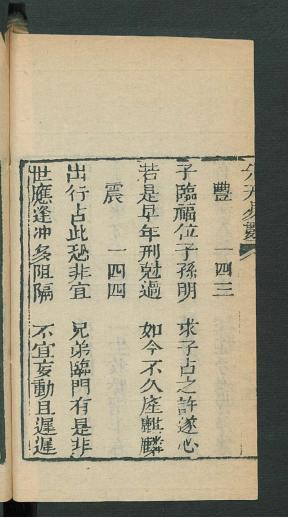 豐　一四三
子臨福位子孫明　求子占之許遂心
若是早年刑尅過　如今不久産麒麟
震　一四四
出行占此恐非宜　兄弟臨門有是非
世應逢冲多阻隔　不宜妄動且遲遲